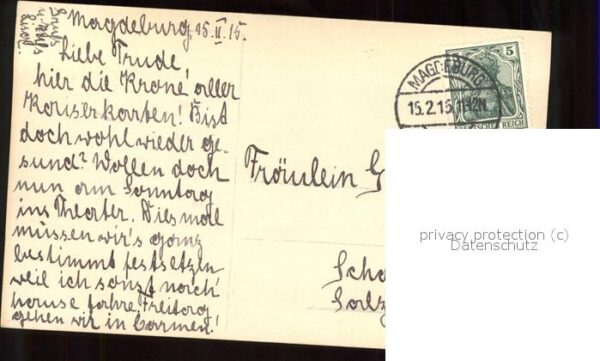 Magdeburg 15.II.15.
Liebe Trude,
hier die Krone aller
Kaiserkarten! Bist
doch wohl wieder ge-
sund? Wollen doch
nun am Sonntag
ins Theater. Diesmal
müssen wir's ganz
bestimmt festsetzen
weil ich sonst nach
hause fahre. Freitag
gehen wir in Carmen!
Gruß
MAGDEBURG
15.2.15.11-12N.
5
DEUTSCHES REICH
Fräulein G
Scho
Salz
privacy protection (c)
Datenschutz